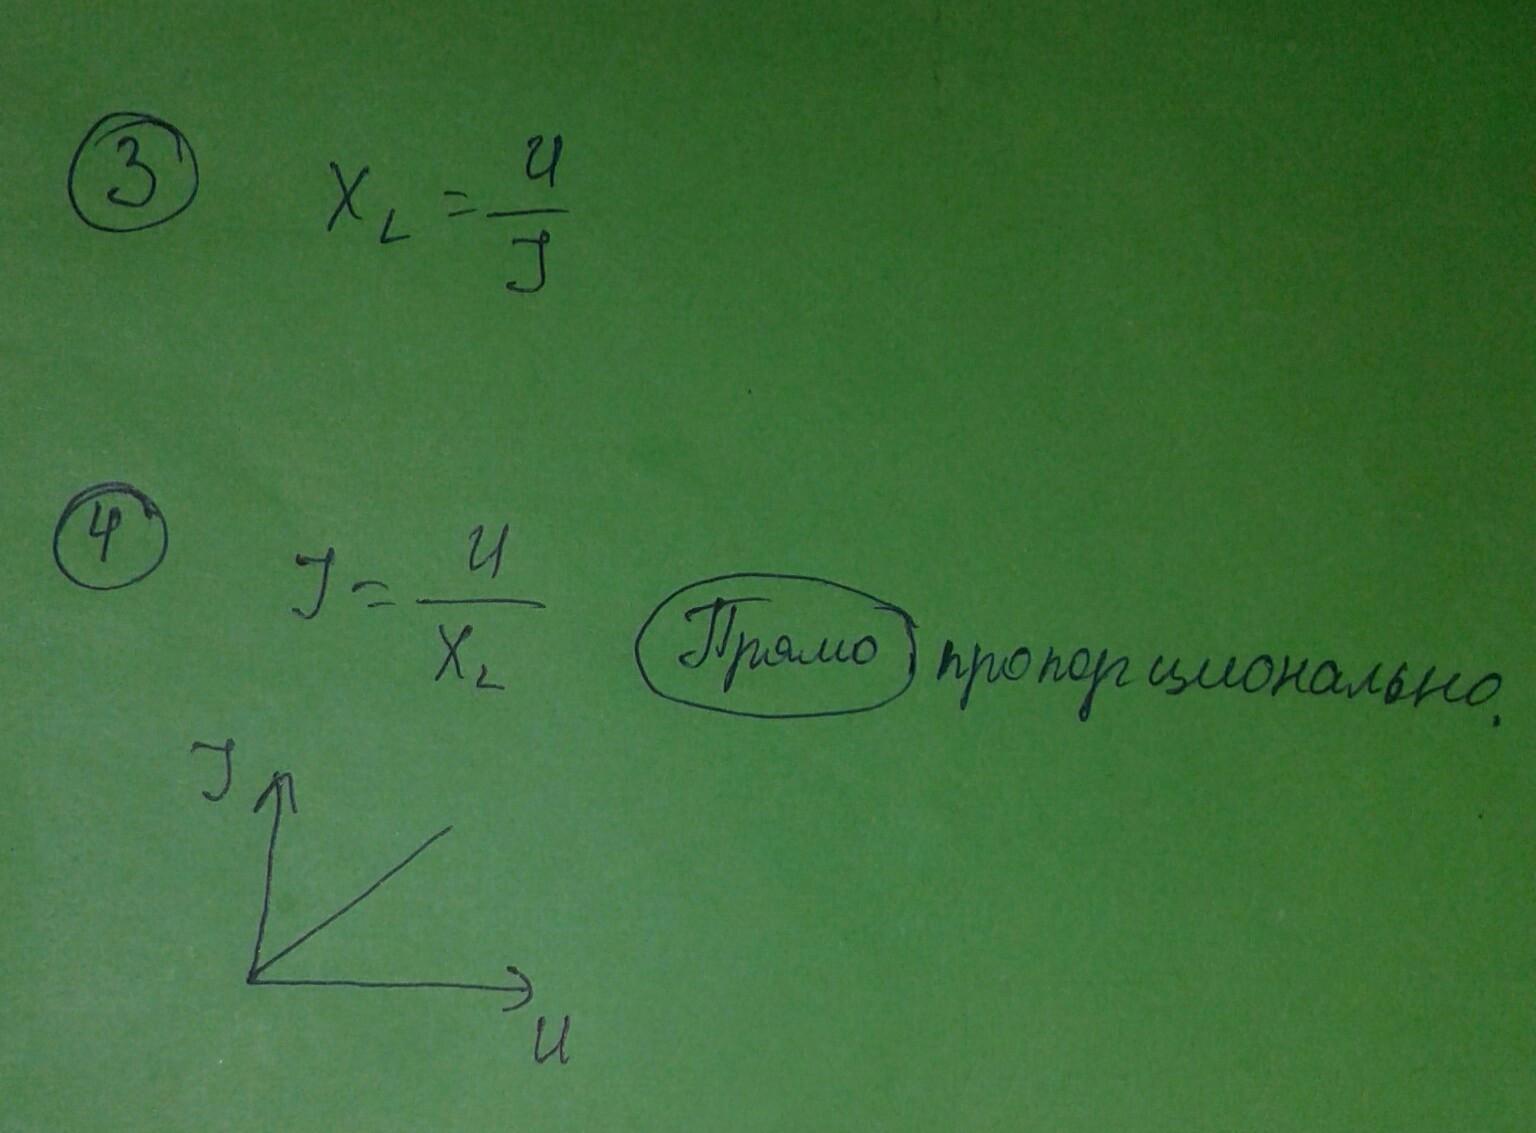 3 X_L = U/I
4 I = U/X_L Прямо пропорционально.
I
U